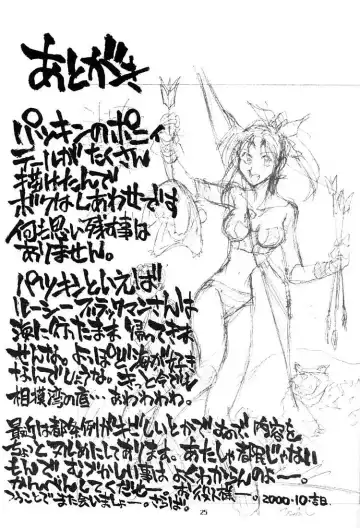 あとがき
パツキンのポニィ
テールがたくさん
描けたんで
ボクはしあわせです
何も思い残す事は
ありません。
パツキンといえば
ルーシーブラックマンさんは
海に行ったまま帰ってきま
せんな。よっぽど海が好き
なんでしょうな。きっと今ごろ
相模湾の底…おわわわわ。
最近は都条例がキビしいとかでおで内容を
ちょっとヌルめにしております。あたしゃ都民じゃない
もんで むづかしい事は よくわからんのよー。
かんべんしてくだせー お役人様ー。
つうことでまた会いましょー。さらば。 2000・10・吉日
25